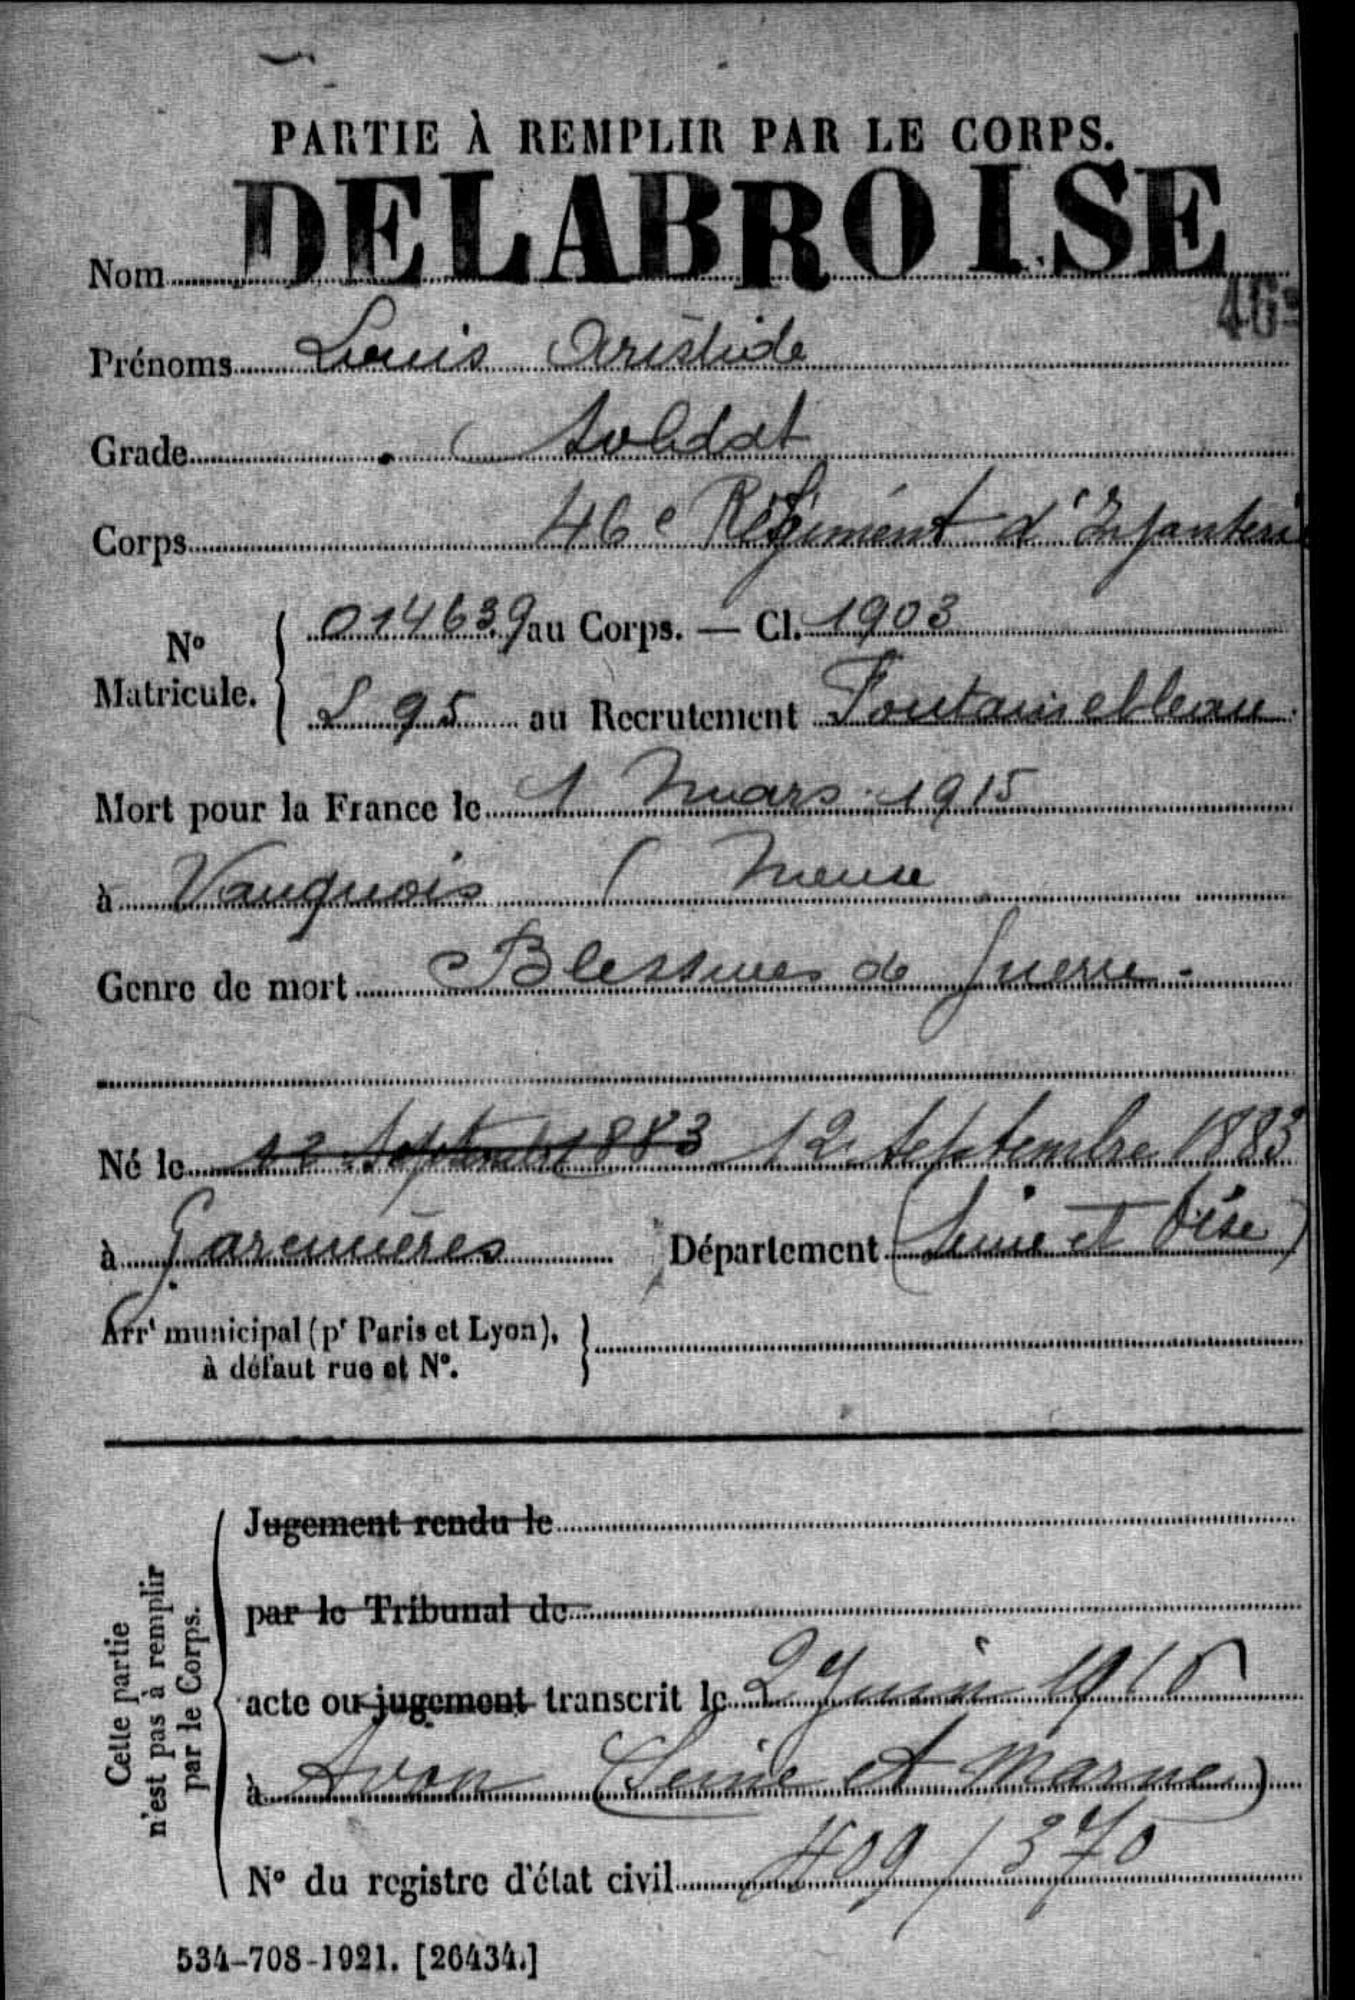 PARTIE À REMPLIR PAR LE CORPS.
Nom DELABROISE
46e
Prénoms Louis Aristide
Grade Soldat
Corps 46e Régiment d'Infanterie
No Matricule. 014639 au Corps. — Cl. 1903
95 au Recrutement Fontainebleau
Mort pour la France le 1 Mars 1915
à Vauquois ( Meuse
Genre de mort Blessures de guerre -
Né le 12 Septembre 1883 12 Septembre 1883
à Garennières Département (Seine et Oise)
Arrt municipal (pr Paris et Lyon), à défaut rue et No.
Cette partie n'est pas à remplir par le Corps.
Jugement rendu le
par le Tribunal de
acte ou jugement transcrit le Juin 1915
à Avon (Seine et Marne)
No du registre d'état civil 409 / 370
534-708-1921. [26434.]